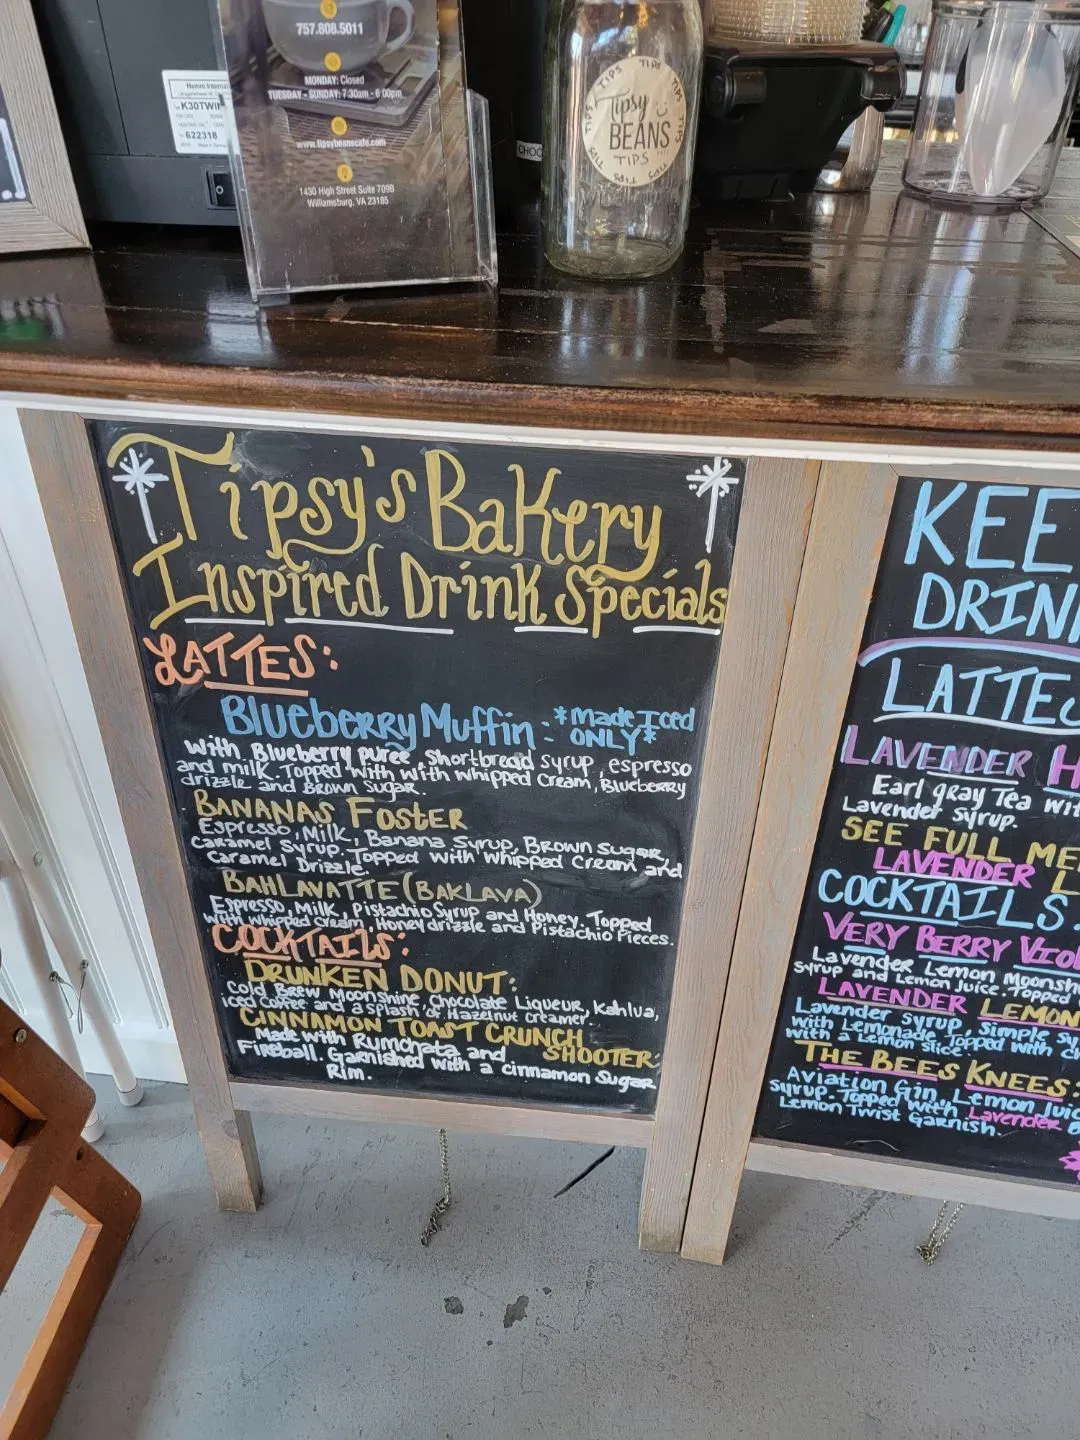 757.808.5011
MONDAY: Closed
TUESDAY - SUNDAY: 7:30am - 6:00pm
www.tipsybeanscafe.com
1430 High Street Suite 709B
Williamsburg, VA 23185
K30TWIN
622318
CHOC
TIPS TIPS TIPS
Tipsy
BEANS
TIPS
Tipsy's Bakery
Inspired Drink Specials
LATTES:
Blueberry Muffin - *Made Iced
ONLY*
with Blueberry puree, Shortbread syrup, espresso
and milk. Topped with with whipped cream, Blueberry
drizzle and Brown Sugar.
BANANAS FOSTER
Espresso, Milk, Banana Syrup, Brown sugar,
caramel Syrup, Topped with whipped Cream and
Caramel Drizzle.
BAHLAVATTE (BAKLAVA)
Espresso, Milk, Pistachio Syrup and Honey. Topped
with whipped cream, Honey drizzle and Pistachio Pieces.
COCKTAILS:
DRUNKEN DONUT:
Cold Brew Moonshine, Chocolate Liqueur, Kahlua,
iced coffee and a splash of Hazelnut creamer.
CINNAMON TOAST CRUNCH
SHOOTER:
Made with Rumchata and
Fireball. Garnished with a cinnamon Sugar
Rim.
KEE
DRIN
LATTE
LAVENDER H
Earl gray Tea wit
Lavender syrup.
SEE FULL ME
LAVENDER L
COCKTAILS
VERY BERRY VIO
Lavender Lemon Moonsh
syrup and Lemon juice. Topped
LAVENDER LEMON
Lavender syrup, Simple sy
with Lemonade Topped with
with a Lemon slice.
THE BEES KNEES:
Aviation Gin, Lemon Juic
syrup. Topped with Lavender
Lemon Twist Garnish.